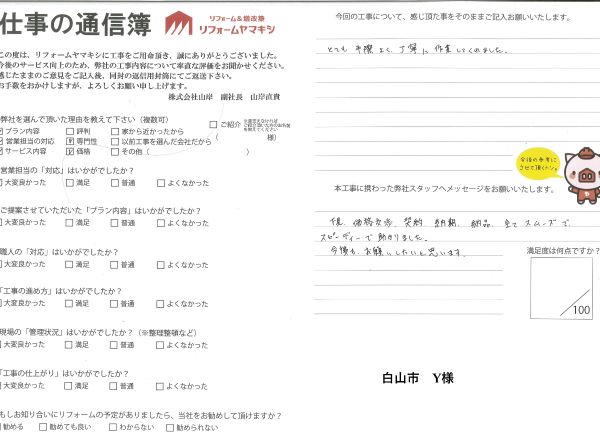 仕事の通信簿
リフォーム&増改築
リフォームヤマキシ
この度は、リフォームヤマキシに工事をご用命頂き、誠にありがとうございました。
今後のサービス向上のため、弊社の工事内容について率直な評価をお聞かせください。
感じたままのご意見をご記入後、同封の返信用封筒にてご返送下さい。
お手数をおかけしますが、よろしくお願い申し上げます。
株式会社山岸 副社長 山岸直貴
弊社を選んで頂いた理由を教えて下さい（複数可）
プラン内容 □評判 □家から近かったから
営業担当の対応 専門性 □以前工事を選んだ会社だから
サービス内容 価格 □その他（ ）
□ご紹介
（ 様）
営業担当の「対応」はいかがでしたか？
大変良かった □満足 □普通 □よくなかった
ご提案させていただいた「プラン内容」はいかがでしたか？
大変良かった □満足 □普通 □よくなかった
職人の「対応」はいかがでしたか？
大変良かった □満足 □普通 □よくなかった
「工事の進め方」はいかがでしたか？
大変良かった □満足 □普通 □よくなかった
現場の「管理状況」はいかがでしたか？（※整理整頓など）
大変良かった □満足 □普通 □よくなかった
「工事の仕上がり」はいかがでしたか？
大変良かった □満足 □普通 □よくなかった
もしお知り合いにリフォームの予定がありましたら、当社をお勧めして頂けますか？
勧める □勧めても良い □わからない □勧められない
今回の工事について、感じ頂た事をそのままご記入お願いいたします。
とても手際よく、丁寧に作業してくれました。
今後の参考に
させて頂くトン。
本工事に携わった弊社スタッフへメッセージをお願いいたします。
価格交渉、契約、納期、納品、全てスムーズで
スピーディーで助かりました。
今後も、お願いしたいと思います。
満足度は何点ですか？
/100
白山市 Y様